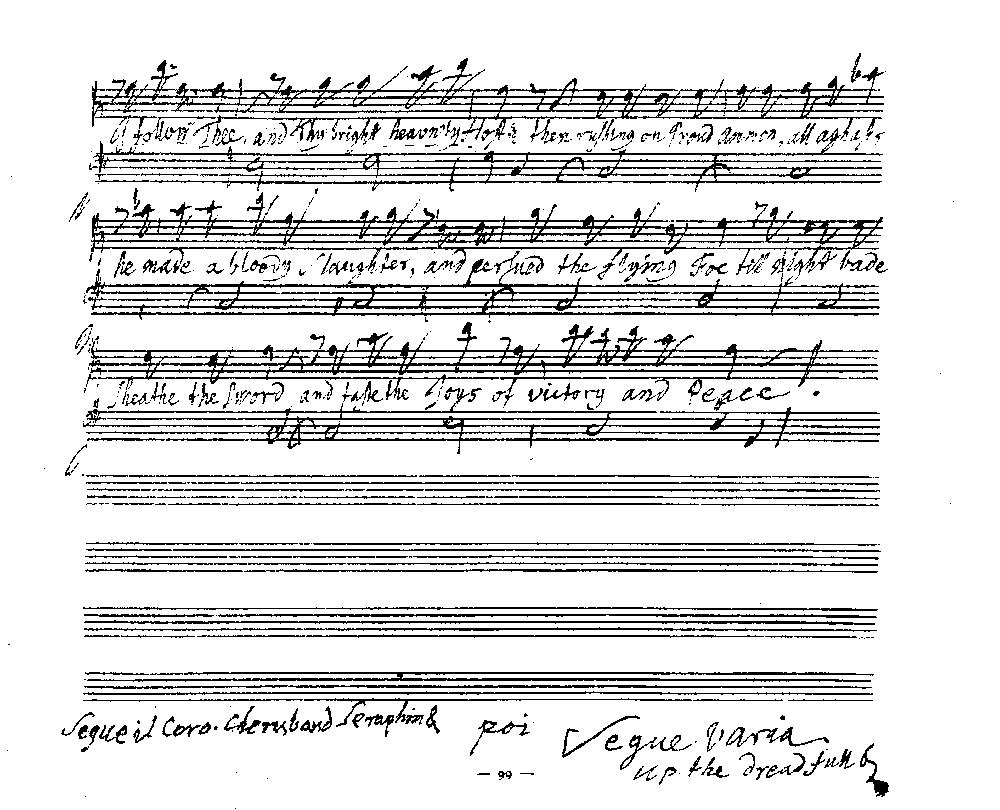 I follow Thee, and Thy bright heav'nly Host: then rushing on Proud Ammon, all aghast,
he made a bloody slaughter, and persued the flying Foe till Night bade
sheathe the Sword and taste the Joys of victory and Peace.
Segue il Coro. Cherub and Seraphim & poi Segue l'aria
Up the dreadfull &
— 99 —